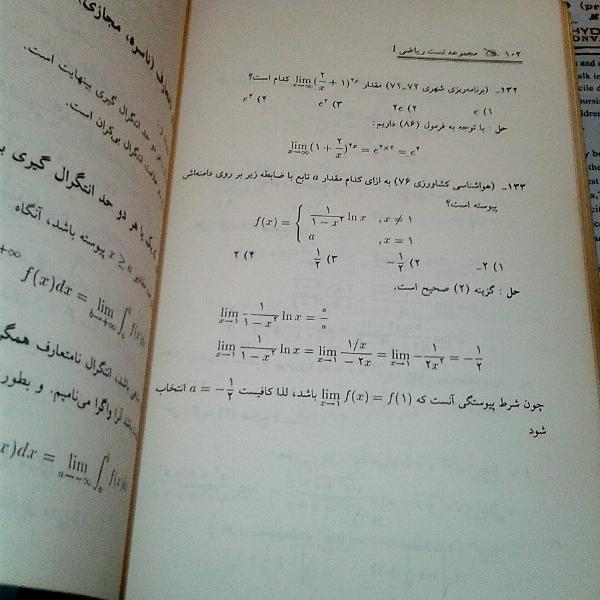 ۱۰۲ مجموعه تست ریاضی I
۱۳۲_ (برنامه‌ریزی شهری ۷۲_۷۱) مقدار lim x→∞ (۲/x + ۱)^۲x کدام است؟
۱) e ۲) ۲e ۳) e^۲ ۴) e^۴
حل : با توجه به فرمول (۸۶) داریم:
lim x→∞ (۱ + ۲/x)^۲x = e^۲×۲ = e^۴
۱۳۳_ (هواشناسی کشاورزی ۷۶) به ازای کدام مقدار a تابع با ضابطه زیر بر روی دامنه‌اش
پیوسته است؟
f(x) = { ۱/(۱ − x^۲) ln x , x ≠ ۱
a , x = ۱
۱) ۲_ ۲) −۱/۲ ۳) ۱/۲ ۴) ۲
حل : گزینه (۲) صحیح است.
lim x→۱ ۱/(۱ − x^۲) ln x = ۰/۰
lim x→۱ ۱/(۱ − x^۲) ln x = lim x→۱ (۱/x)/(− ۲x) = lim x→۱ − ۱/(۲x^۲) = − ۱/۲
چون شرط پیوستگی آنست که lim x→۱ f(x) = f(۱) باشد، لذا کافیست a = − ۱/۲ انتخاب
شود
(ناسره، مجازی)
دو حد انتگرال گیری بینهایت است.
انتگرال بی‌کران است.
یا هر دو حد انتگرال گیری
x ≥ a پیوسته باشد، آنگاه
f(x)dx = lim b→+∞ ∫ f(x)
باشد، انتگرال نامتعارف همگرا
واگرا می‌نامیم. و بطور
x)dx = lim a→−∞ ∫ f(x)